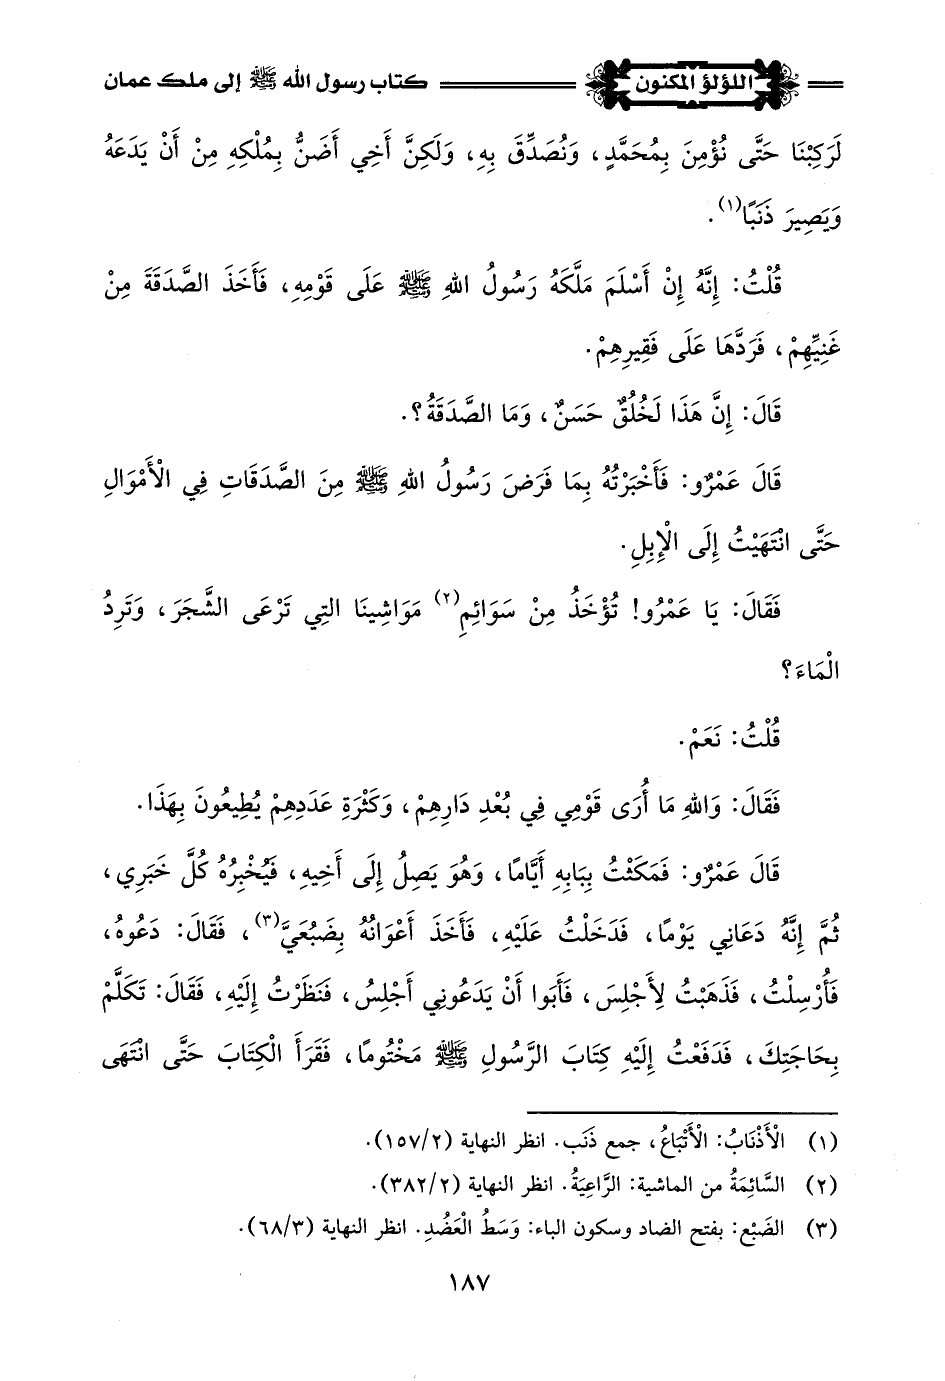 اللؤلؤ المكنون كتاب رسول الله ﷺ إلى ملك عمان
لَرَكِبْنَا حَتَّى نُؤْمِنَ بِمُحَمَّدٍ، وَنُصَدِّقَ بِهِ، وَلَكِنَّ أَخِي أَضَنُّ بِمُلْكِهِ مِنْ أَنْ يَدَعَهُ
وَيَصِيرَ ذَنَبًا(١).
قُلْتُ: إِنَّهُ إِنْ أَسْلَمَ مَلَّكَهُ رَسُولُ اللهِ ﷺ عَلَى قَوْمِهِ، فَأَخَذَ الصَّدَقَةَ مِنْ
غَنِيِّهِمْ، فَرَدَّهَا عَلَى فَقِيرِهِمْ.
قَالَ: إِنَّ هَذَا لَخُلُقٌ حَسَنٌ، وَمَا الصَّدَقَةُ؟.
قَالَ عَمْرٌو: فَأَخْبَرْتُهُ بِمَا فَرَضَ رَسُولُ اللهِ ﷺ مِنَ الصَّدَقَاتِ فِي الْأَمْوَالِ
حَتَّى انْتَهَيْتُ إِلَى الْإِبِلِ.
فَقَالَ: يَا عَمْرُو! تُؤْخَذُ مِنْ سَوَائِمِ(٢) مَوَاشِينَا التِي تَرْعَى الشَّجَرَ، وَتَرِدُ
الْمَاءَ؟
قُلْتُ: نَعَمْ.
فَقَالَ: وَاللهِ مَا أُرَى قَوْمِي فِي بُعْدِ دَارِهِمْ، وَكَثْرَةِ عَدَدِهِمْ يُطِيعُونَ بِهَذَا.
قَالَ عَمْرٌو: فَمَكَثْتُ بِبَابِهِ أَيَّامًا، وَهُوَ يَصِلُ إِلَى أَخِيهِ، فَيُخْبِرُهُ كُلَّ خَبَرِي،
ثُمَّ إِنَّهُ دَعَانِي يَوْمًا، فَدَخَلْتُ عَلَيْهِ، فَأَخَذَ أَعْوَانُهُ بِضَبُعَيَّ(٣)، فَقَالَ: دَعُوهُ،
فَأُرْسِلْتُ، فَذَهَبْتُ لِأَجْلِسَ، فَأَبَوا أَنْ يَدَعُونِي أَجْلِسُ، فَنَظَرْتُ إِلَيْهِ، فَقَالَ: تَكَلَّمْ
بِحَاجَتِكَ، فَدَفَعْتُ إِلَيْهِ كِتَابَ الرَّسُولِ ﷺ مَخْتُومًا، فَقَرَأَ الْكِتَابَ حَتَّى انْتَهَى
(١) الْأَذْنَابُ: الْأَتْبَاعُ، جمع ذَنَب. انظر النهاية (١٥٧/٢).
(٢) السَّائِمَةُ من الماشية: الرَّاعِيَةُ. انظر النهاية (٣٨٢/٢).
(٣) الضَبْع: بفتح الضاد وسكون الباء: وَسَطُ الْعَضُدِ. انظر النهاية (٦٨/٣).
١٨٧